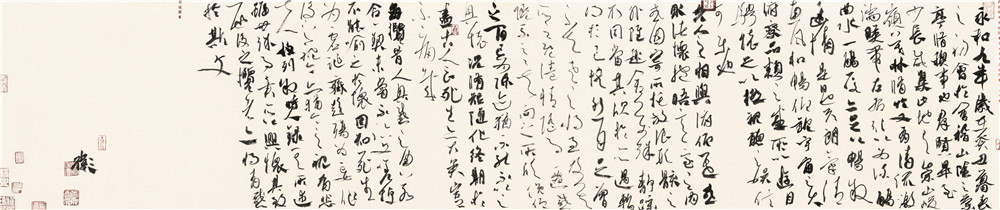 永和九年歲在癸丑暮春
之初會於會稽山陰之蘭
亭脩禊事也群賢畢至
少長咸集此地有崇山峻
領茂林脩竹又有清流激
湍暎帶左右引以為流觴
曲水一觴一詠亦足以暢敘
幽情是日也天朗氣清
惠風和暢仰觀宇宙之大
俯察品類之盛所以遊目
騁懷足以極視聽之娛信
可樂也
夫人之相與俯仰一世
或取諸懷抱悟言一室之內
或因寄所託放浪形骸之
外雖趣舍萬殊靜躁
不同當其欣於所遇暫
得於己快然自足曾
不知老之將至及其
所之既倦情隨事遷感慨
係之矣向之所欣俛仰
之間已為陳迹猶不能不以之
興懷況脩短隨化終期於
盡古人云死生亦大矣豈
不痛哉
每攬昔人興感之由若
合一契未嘗不臨文嗟悼
不能喻之於懷固知一死生
為虛誕齊彭殤為妄作
後之視今亦猶今之視昔悲
夫故列敘時人錄其所述
雖世殊事異所以興懷其致
一也後之攬者亦將有感
於斯文